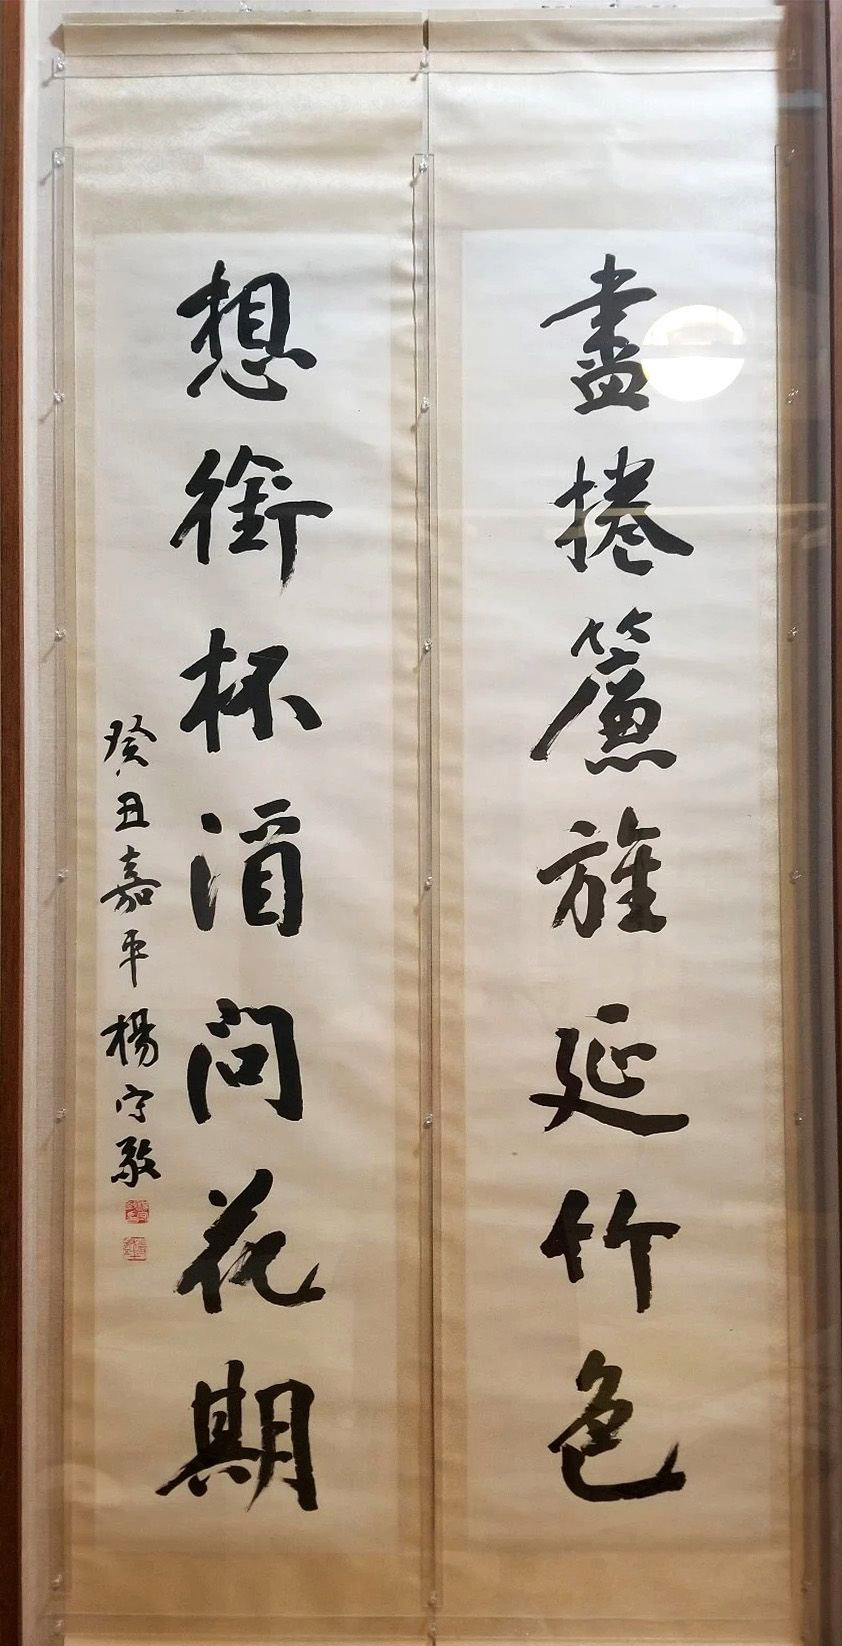 盡捲簾旌延竹色
想銜杯酒問花期
癸丑嘉平楊守敬